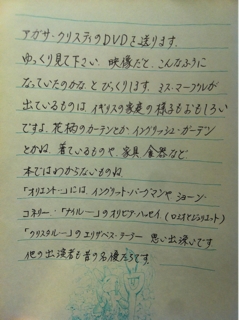 アガサ・クリスティのDVDを送ります.
ゆっくり見て下さい. 映像だと、こんなふうに
なっていたのかな、とびっくりします. ミス・マープルが
出ているものは、イギリスの家庭の様子もおもしろい
ですよ. 花柄のカーテンとか、イングリッシュ・ガーデン
とかね. 着ているものや 家具, 食器など
本ではわからないものね
「オリエント―」には、イングリット・バーグマンや ショーン・
コネリー.「ナイル―」のオリビア・ハッセイ.(ロミオとジュリエット)
「クリスタル―」のエリザベス・テーラー 思い出深いです
他の出演者も昔の名優たちです.